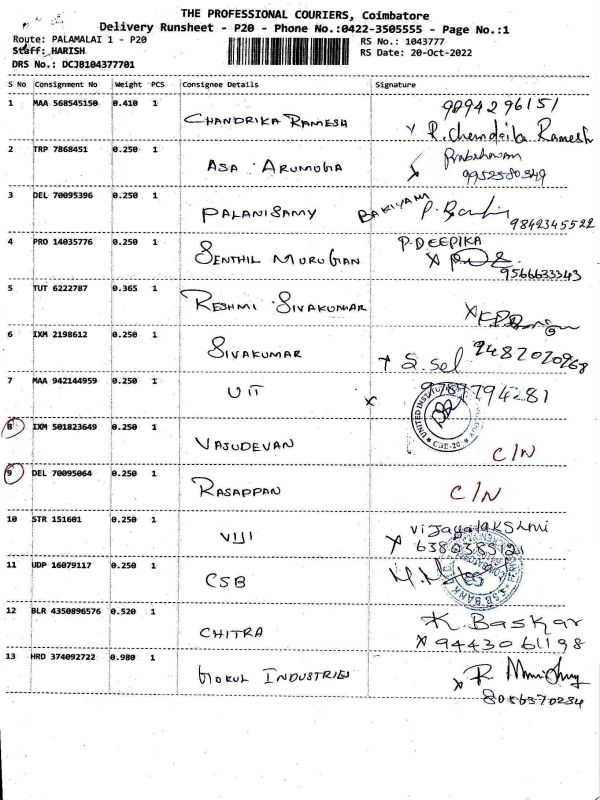 THE PROFESSIONAL COURIERS, Coimbatore
Delivery Runsheet - P20 - Phone No.:0422-3505555 - Page No.:1
Route: PALAMALAI 1 - P20 RS No.: 1043777
Staff: HARISH RS Date: 20-Oct-2022
DRS No.: DCJB104377701
S No Consignment No Weight PCS Consignee Details Signature
1 MAA 568545150 0.410 1 CHANDRIKA RAMESH 9894296151
R. Chandrika Ramesh
2 TRP 7868451 0.250 1 ASA ARUMUGA
9952580349
3 DEL 70095396 0.250 1 PALANISAMY BAKIYAM P.
9842345522
4 PRO 14035776 0.250 1 SENTHIL MURUGAN P. DEEPIKA
9566633343
5 TUT 6222787 0.365 1 RESHMI SIVAKUMAR
6 IXM 2198612 0.250 1 SIVAKUMAR S. Sel 9487020968
7 MAA 942144959 0.250 1 UIT 9789794281
UNITED INSTITU
CBE-20
8 IXM 501823649 0.250 1 VASUDEVAN C/N
9 DEL 70095064 0.250 1 RASAPPAN C/N
10 STR 151601 0.250 1 VIJI Vijayalakshmi
6380385121
11 UDP 16079117 0.250 1 CSB
CSB BANK
12 BLR 4350896576 0.520 1 CHITRA K. Baskar
9443061198
13 HRD 374092722 0.980 1 GOKUL INDUSTRIES R
8056570234